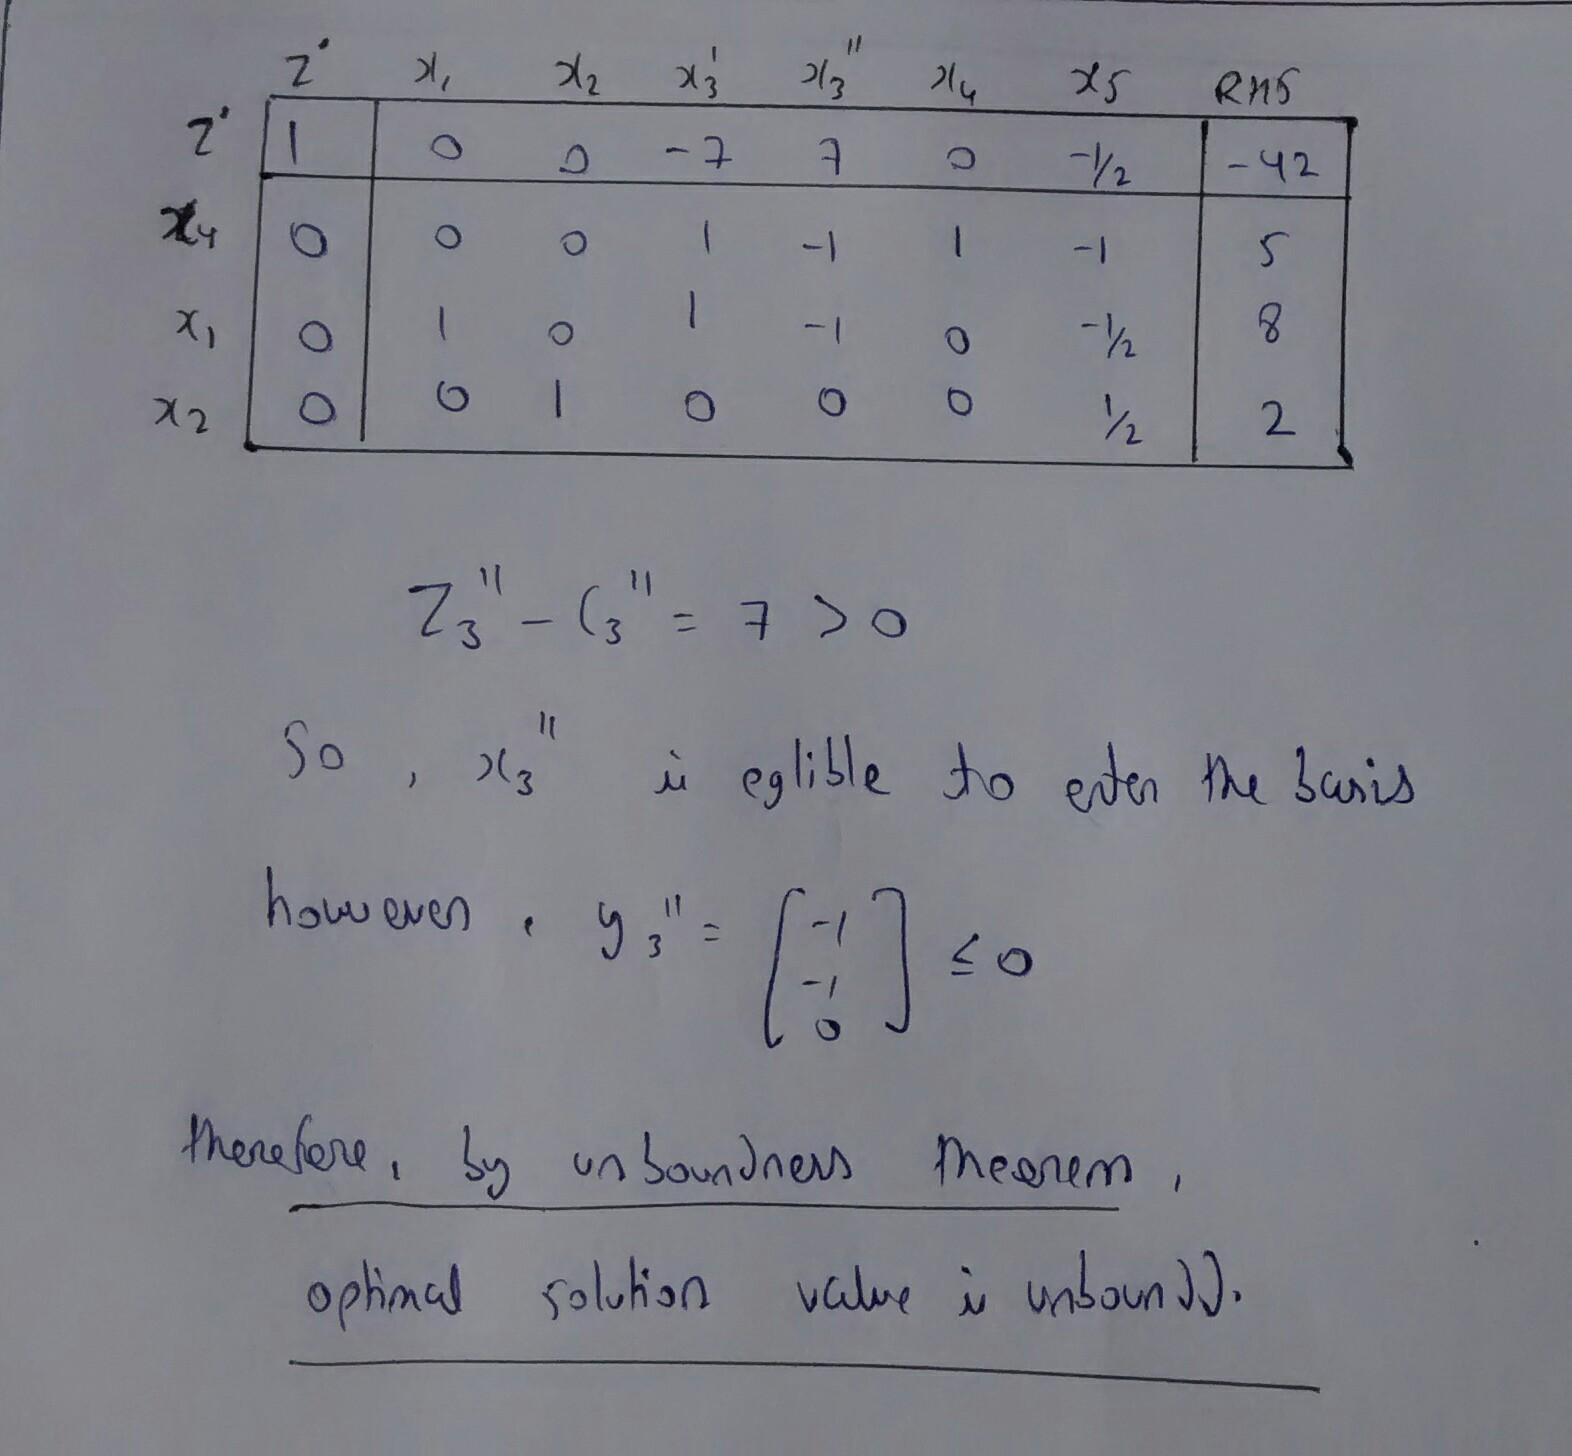 z° x₁ x₂ x₃' x₃'' x₄ x₅ RHS
z° 1 0 0 -7 7 0 -1/2 -42
x₄ 0 0 0 1 -1 1 -1 5
x₁ 0 1 0 1 -1 0 -1/2 8
x₂ 0 0 1 0 0 0 1/2 2
Z₃'' - C₃'' = 7 > 0
So , x₃'' is eglible to enter the basis
however , y₃'' = [-1 -1 0] ≤ 0
therefore, by unboundness theorem ,
optimal solution value is unboundd.